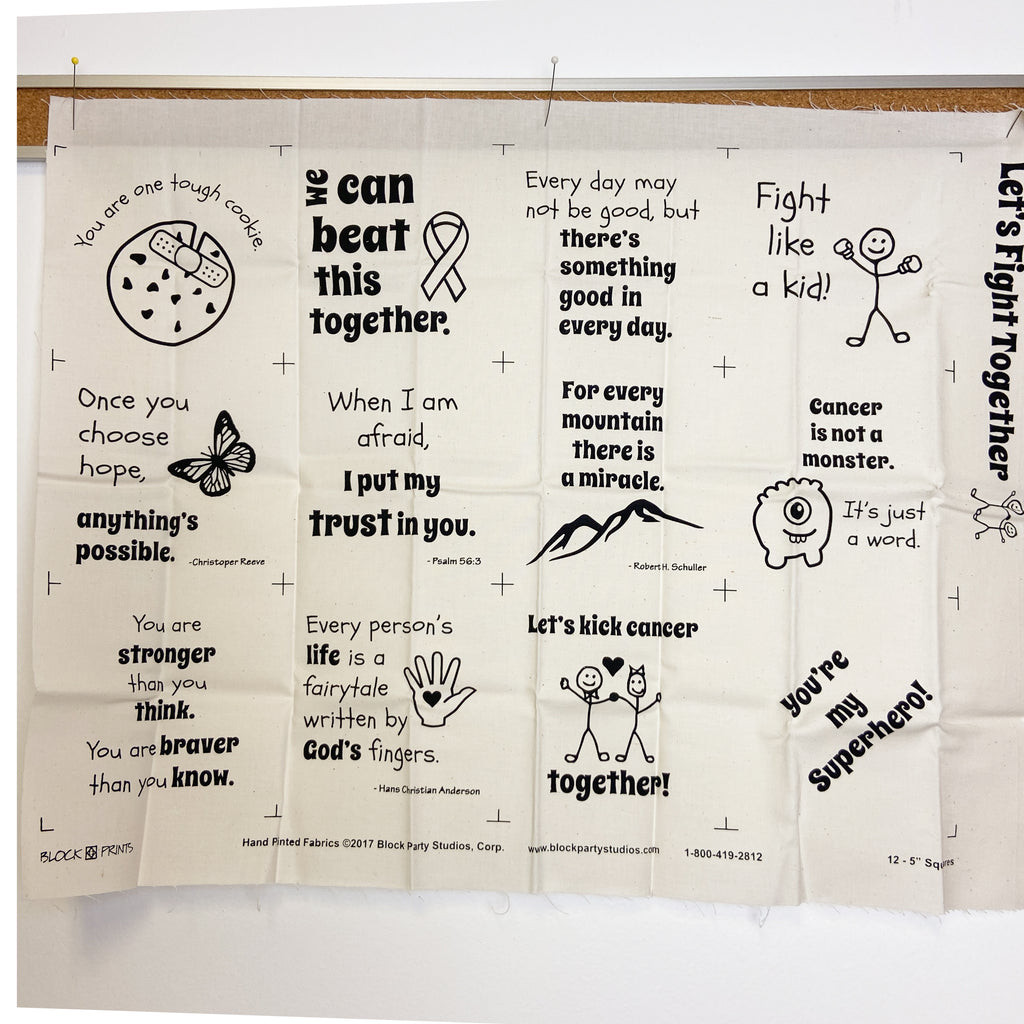 You are one tough cookie.
we can
beat
this
together.
Every day may
not be good, but
there's
something
good in
every day.
Fight
like
a kid!
Once you
choose
hope,
anything's
possible.
-Christoper Reeve
When I am
afraid,
I put my
trust in you.
- Psalm 56:3
For every
mountain
there is
a miracle.
- Robert H. Schuller
Cancer
is not a
monster.
It's just
a word.
You are
stronger
than you
think.
You are braver
than you know.
Every person's
life is a
fairytale
written by
God's fingers.
- Hans Christian Anderson
Let's kick cancer
together!
you're
my
Superhero!
Let's Fight Together
BLOCK PRINTS
Hand Pinted Fabrics ©2017 Block Party Studios, Corp.
www.blockpartystudios.com
1-800-419-2812
12 - 5" Squares